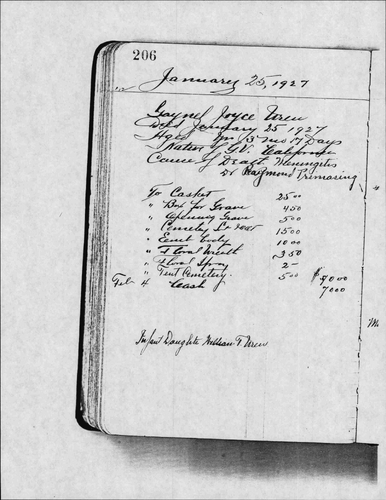 206
January 25, 1927
Joyce Wren
Died January 25 1927
Aged 1 yr 5 mos 17 Days
Native of G.V. California
Cause of Death Meningetes
Dr Raymond
To Casket 25 00
" Box for Grave 4 50
" Opening Grave 5 00
" Cemetey Lot 15 00
" Emb Body 10 00
" Floral Wreath 3 50
" Floral Spray 2 -
" Tent Cemetery. 5 00 $70 00
Feb 4 Cash 70 00
Infant Daughte William T Wren